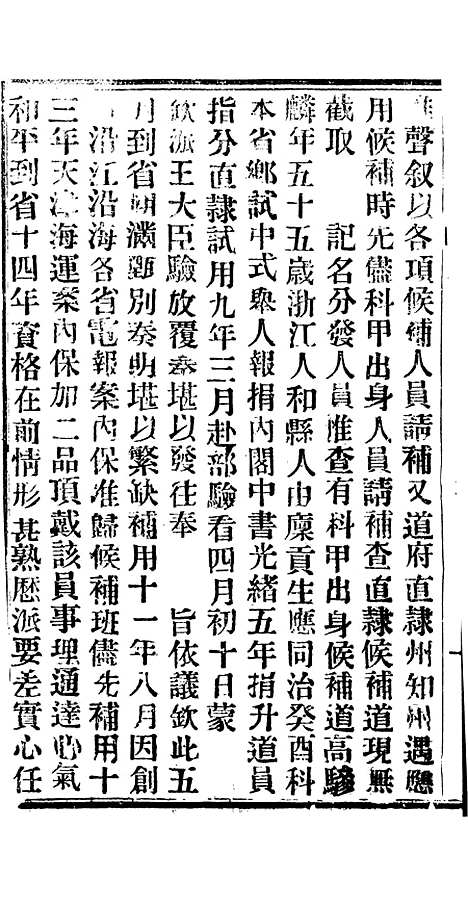 聲叙以各項候補人員請補又道府直隸州知州遇應
用候補時先儘科甲出身人員請補查直隸候補道現無
截取　記名分發人員惟查有科甲出身候補道高驂
麟年五十五歲浙江人和縣人由廩貢生應同治癸酉科
本省鄉試中式舉人報捐內閣中書光緒五年捐升道員
指分直隸試用九年三月赴部驗看四月初十日蒙
欽派王大臣驗放覆奏堪以發往奉　旨依議欽此五
月到省期滿甄別奏明堪以繁缺補用十一年八月因創
沿江沿海各省電報案內保准歸候補班儘先補用十
三年天津海運案內保加二品頂戴該員事理通達心氣
和平到省十四年資格在前情形甚熟歷派要差實心任